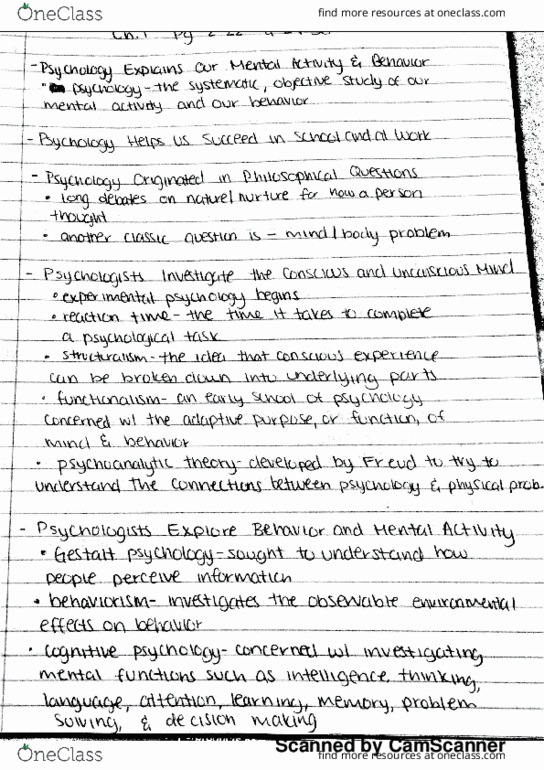 OneClass
find more resources at oneclass.com
Ch. 1 Pg
- Psychology Explains Our Mental Activity & Behavior
• psychology - the systematic, objective study of our
mental activity and our behavior
- Psychology Helps Us Succeed in School and at Work
- Psychology Originated in Philosophical Questions
• long debates on nature/nurture for how a person
thought
• another classic question is = mind/body problem
- Psychologists Investigate the Conscious and Unconscious Mind
• experimental psychology begins
• reaction time - the time it takes to complete
a psychological task
• structuralism - the idea that conscious experience
can be broken down into underlying parts
• functionalism - an early school of psychology
concerned w/ the adaptive purpose, or function, of
mind & behavior
• psychoanalytic theory - developed by Freud to try to
understand the connections between psychology & physical prob.
- Psychologists Explore Behavior and Mental Activity
• Gestalt psychology - sought to understand how
people perceive information
• behaviorism - investigates the observable environmental
effects on behavior
• cognitive psychology - concerned w/ investigating
mental functions such as intelligence, thinking,
language, attention, learning, memory, problem
solving, & decision making
Scanned by CamScanner
OneClass
find more resources at oneclass.com